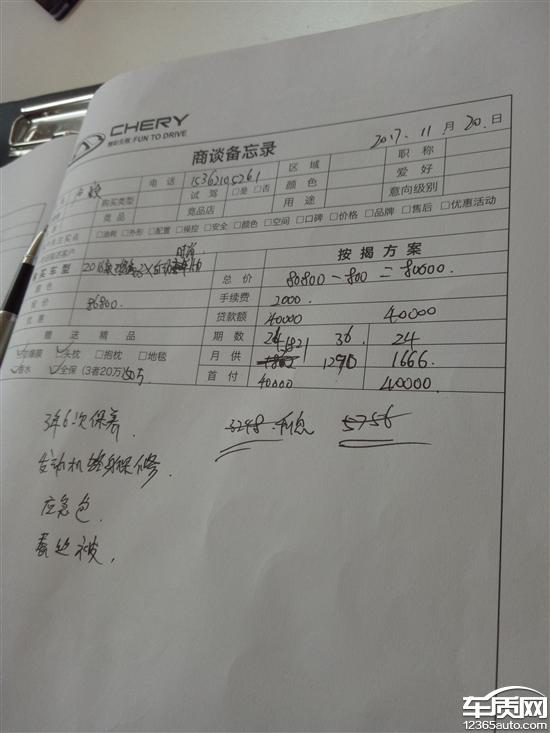 CHERY
FUN TO DRIVE
商谈备忘录
2017. 11 月 20. 日
电 话 15362105261 区 域 职 称
购买类型 试 驾 □是 □否 颜 色 爱 好
竞 品 竞品店 用 途 意向级别
□油耗 □外形 □配置 □操控 □安全 □颜色 □空间 □口碑 □价格 □品牌 □售后 □优惠活动
买 车 型 按 揭 方 案
总 价 80800-800=80000.
86800. 手续费 2000.
优 惠 贷款额 40000 40000
赠 送 精 品 期 数 24 36 24
头枕 □抱枕 □地毯 月 供 1821 1290 1666.
香水 全保 (3者20万) 50万 首 付 40000 40000
3年6次保养. 3248.利息 5756
发动机终身保修.
应急包.
蚕丝被.
车质网
www.12365auto.com